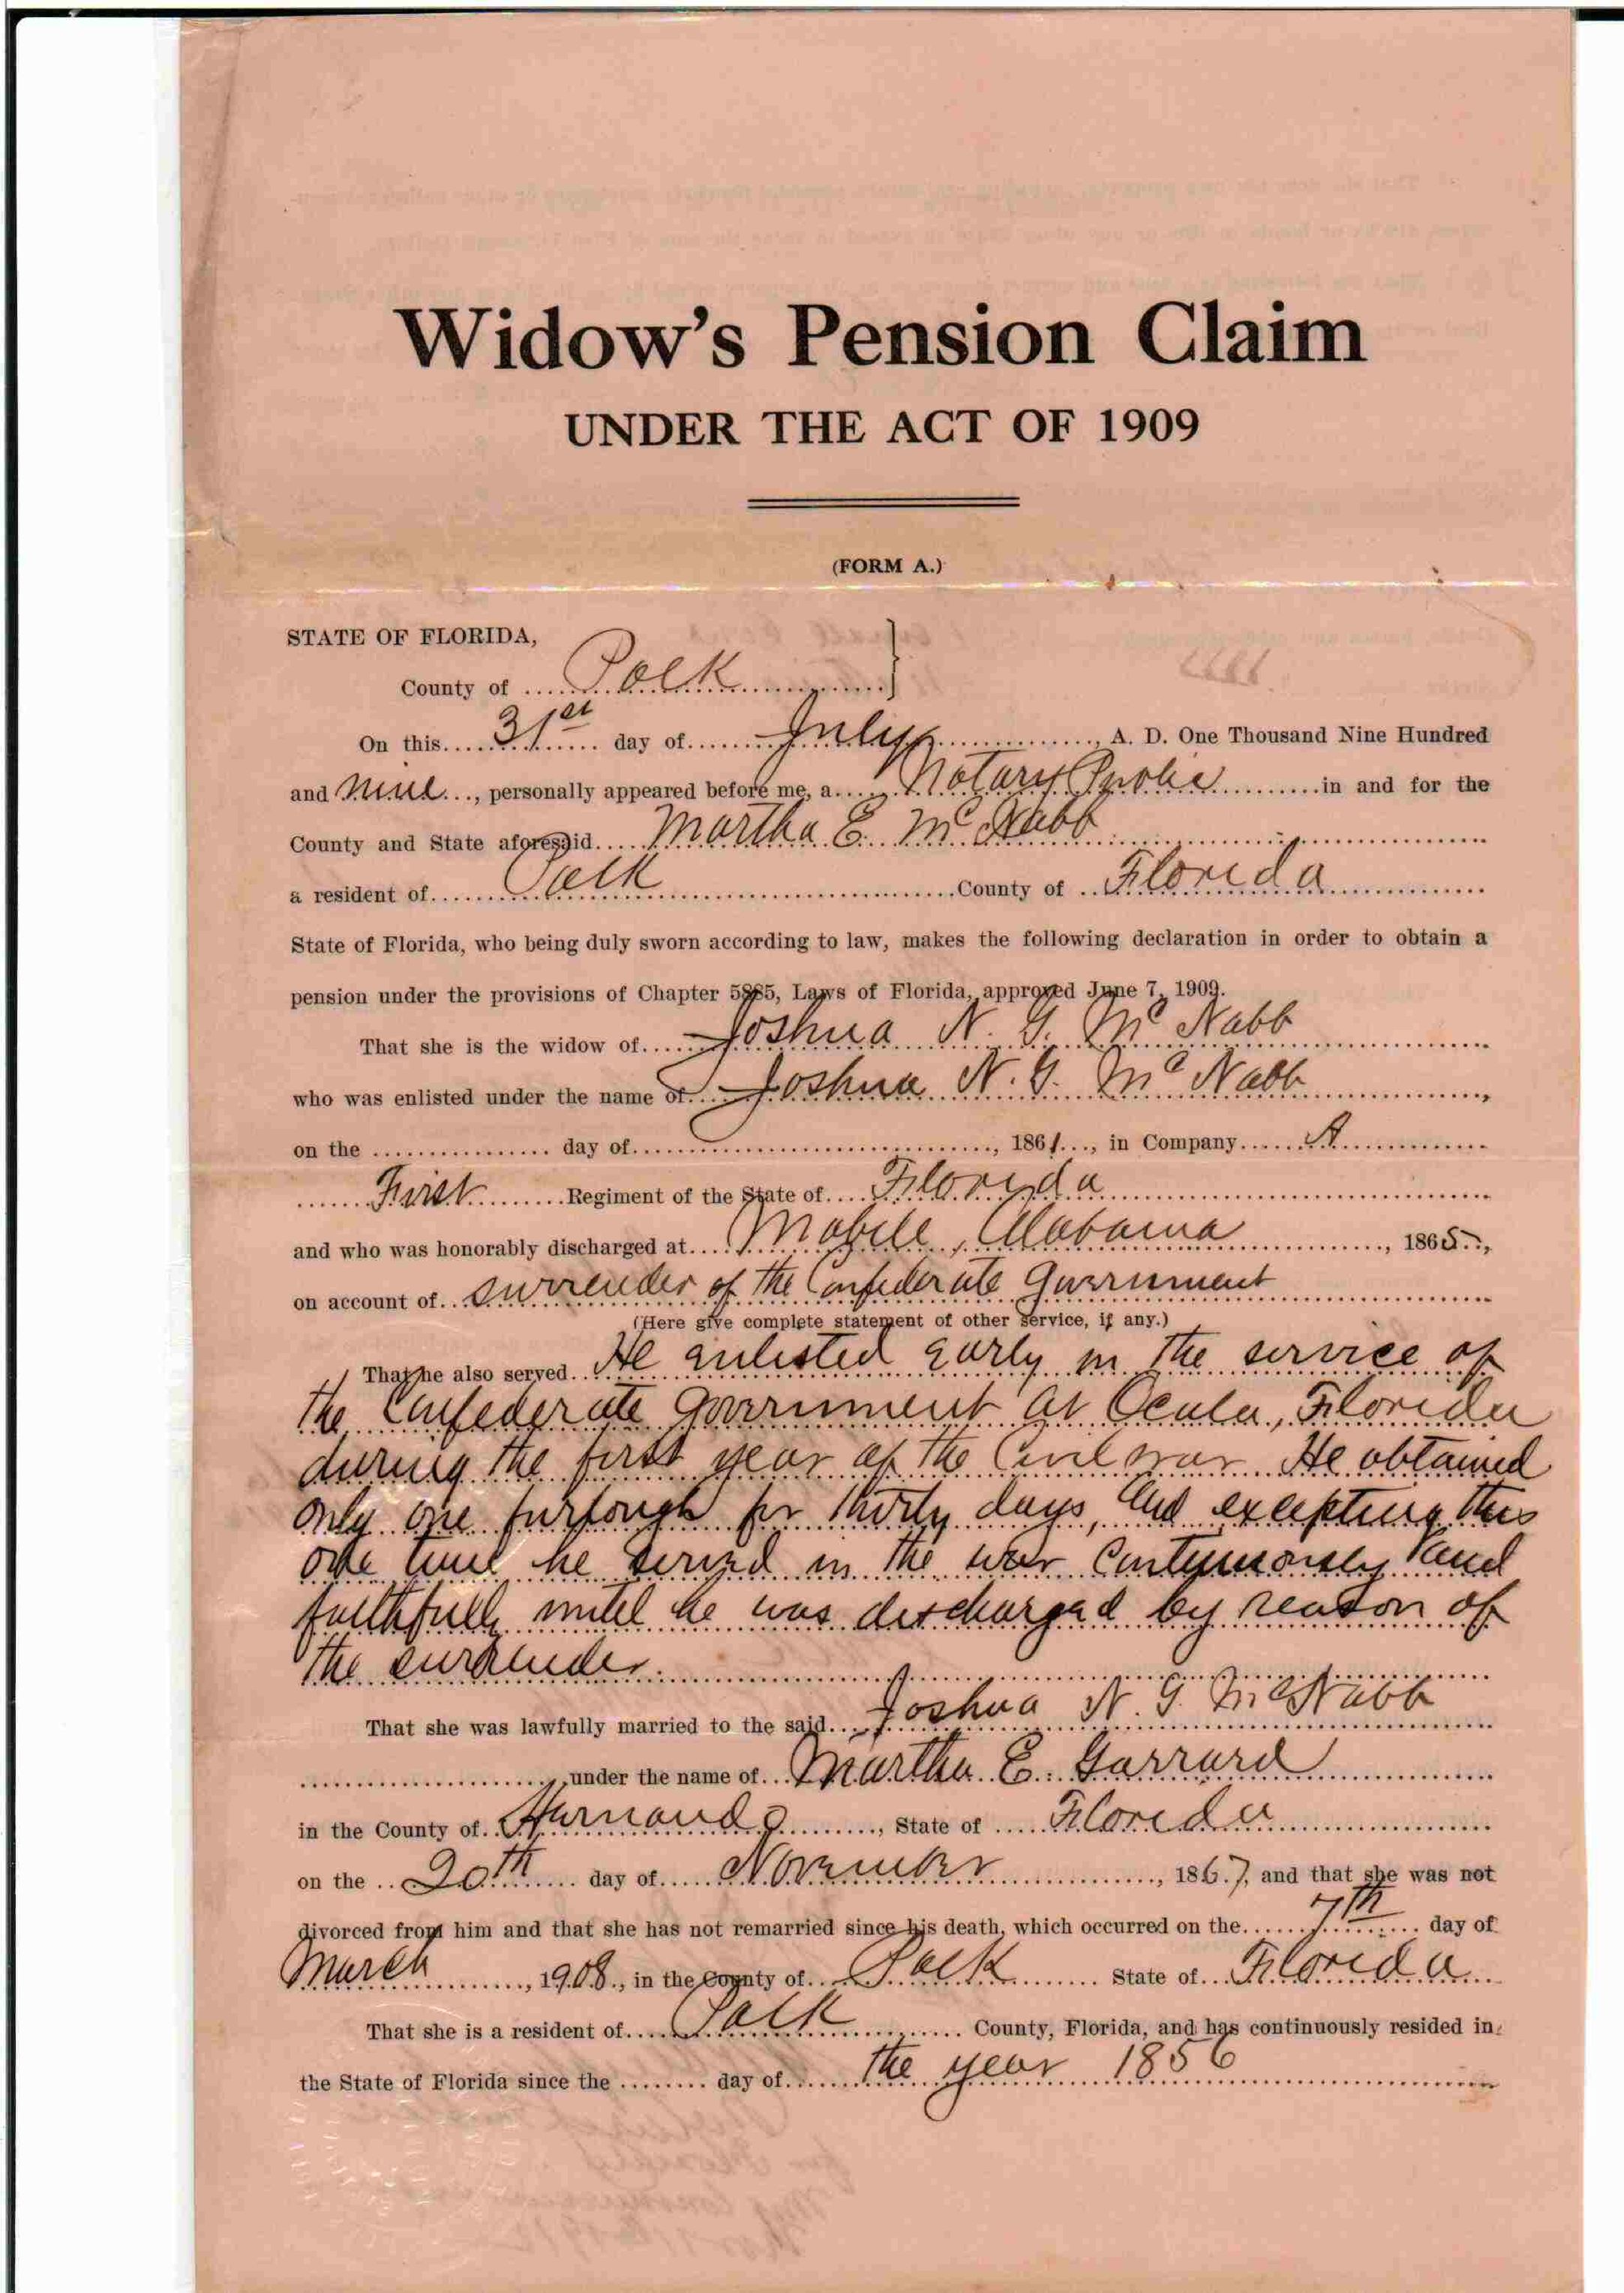 Widow's Pension Claim
UNDER THE ACT OF 1909
(FORM A.)
STATE OF FLORIDA,
County of Polk
On this 31st day of July, A. D. One Thousand Nine Hundred
and nine, personally appeared before me, a Notary Public in and for the
County and State aforesaid Martha E. McNabb
a resident of Polk County of Florida
State of Florida, who being duly sworn according to law, makes the following declaration in order to obtain a
pension under the provisions of Chapter 5885, Laws of Florida, approved June 7, 1909.
That she is the widow of Joshua N. G. McNabb
who was enlisted under the name of Joshua N. G. McNabb,
on the day of, 1861, in Company A
First Regiment of the State of Florida
and who was honorably discharged at Mobile, Alabama, 1865,
on account of surrender of the Confederate Government
(Here give complete statement of other service, if any.)
That he also served He enlisted early in the service of
the Confederate Government at Ocala, Florida
during the first year of the Civil war. He obtained
only one furlough for thirty days, and excepting this
one time he served in the war continuously and
faithfully until he was discharged by reason of
the surrender.
That she was lawfully married to the said Joshua N. G. McNabb
under the name of Martha E. Garrard
in the County of Hernando, State of Florida
on the 20th day of November, 1867, and that she was not
divorced from him and that she has not remarried since his death, which occurred on the 7th day of
March, 1908, in the County of Polk State of Florida
That she is a resident of Polk County, Florida, and has continuously resided in
the State of Florida since the day of the year 1856